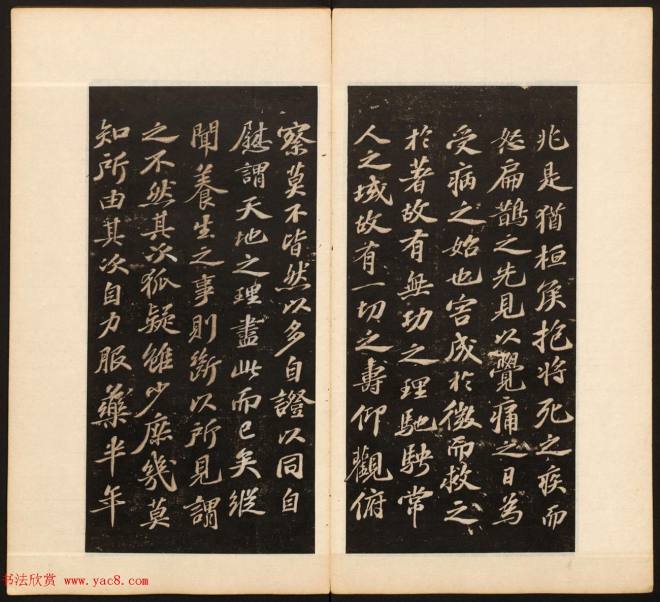 兆是猶桓侯抱將死之疾而
怒扁鵲之先見以覺痛之日為
受病之始也害成於微而救之
於著故有無功之理馳騁常
人之域故有一切之壽仰觀俯
察莫不皆然以多自證以同自
慰謂天地之理盡此而已矣縱
聞養生之事則斷以所見謂
之不然其次狐疑雖少庶幾莫
知所由其次自力服藥半年
书法欣赏 www.yac8.com